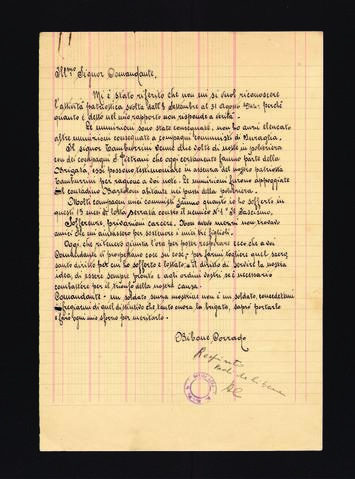 Ill.mo Signor Comandante,
Mi è stato riferito che non mi si vuol riconoscere
l'attività patriottica svolta dall'8 Settembre al 31 agosto 1944 perché
quanto è detto nel mio rapporto non risponde a verità.
Le munizioni sono state consegnate, non ho anzi elencato
altre munizioni consegnate a compagni communisti di
Il signor Tamburrini venne due volte di notte in polveriera
con dei compagni che oggi certamente fanno parte della
Brigata, essi possono testimoniare in assenza del nostro patriota
Tamburrini per ragione a voi note. Le munizioni furono appoggiate
al contadino Bartoloni abitante nei pressi della polveriera.
Molti compagni miei communisti sanno quanto io ho sofferto in
questi 13 mesi di lotta serrata contro il nemico N° 1 il Fascismo.
Sofferenze, privazioni carcere. Non avevo mezzi non trovavo
amici che mi aiutassero per sostenere i miei tre figlioli.
Oggi che ritenevo giunta l'ora per poter respirare ecco che a voi
Comandante vi prospettano cose su cose, per farmi togliere quel sacro,
santo diritto per cui ho sofferto e lottato. Il diritto di servire la nostra
idea, di essere sempre pronto e agli ordini vostri se è necessario
combattere per il trionfo della nostra causa.
Comandante - un soldato senza mostrine non è un soldato, concedetemi
fregiarmi di quel distintivo che tanto onora la brigata, saprò portarlo
e farò ogni mio sforzo per meritarlo.
Bibone Corrado
Respinto